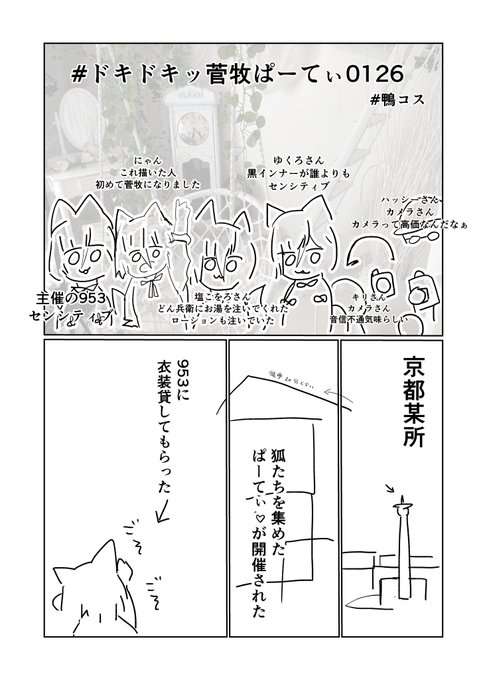 #ドキドキッ菅牧ぱーてぃ0126
#鴨コス
ハッシーさん
カメラさん
カメラって高価なんだなぁ
ゆくろさん
黒インナーが誰よりも
センシティブ
にゃん
これ描いた人
初めて菅牧になりました
キリさん
カメラさん
音信不通気味らしい
塩こをろさん
どん兵衛にお湯を注いでくれた
ローションも注いでいた
主催の953
センシティブ
京都某所
狐たちを集めた
ぱーてぃ♡が開催された
953に
衣装貸してもらった